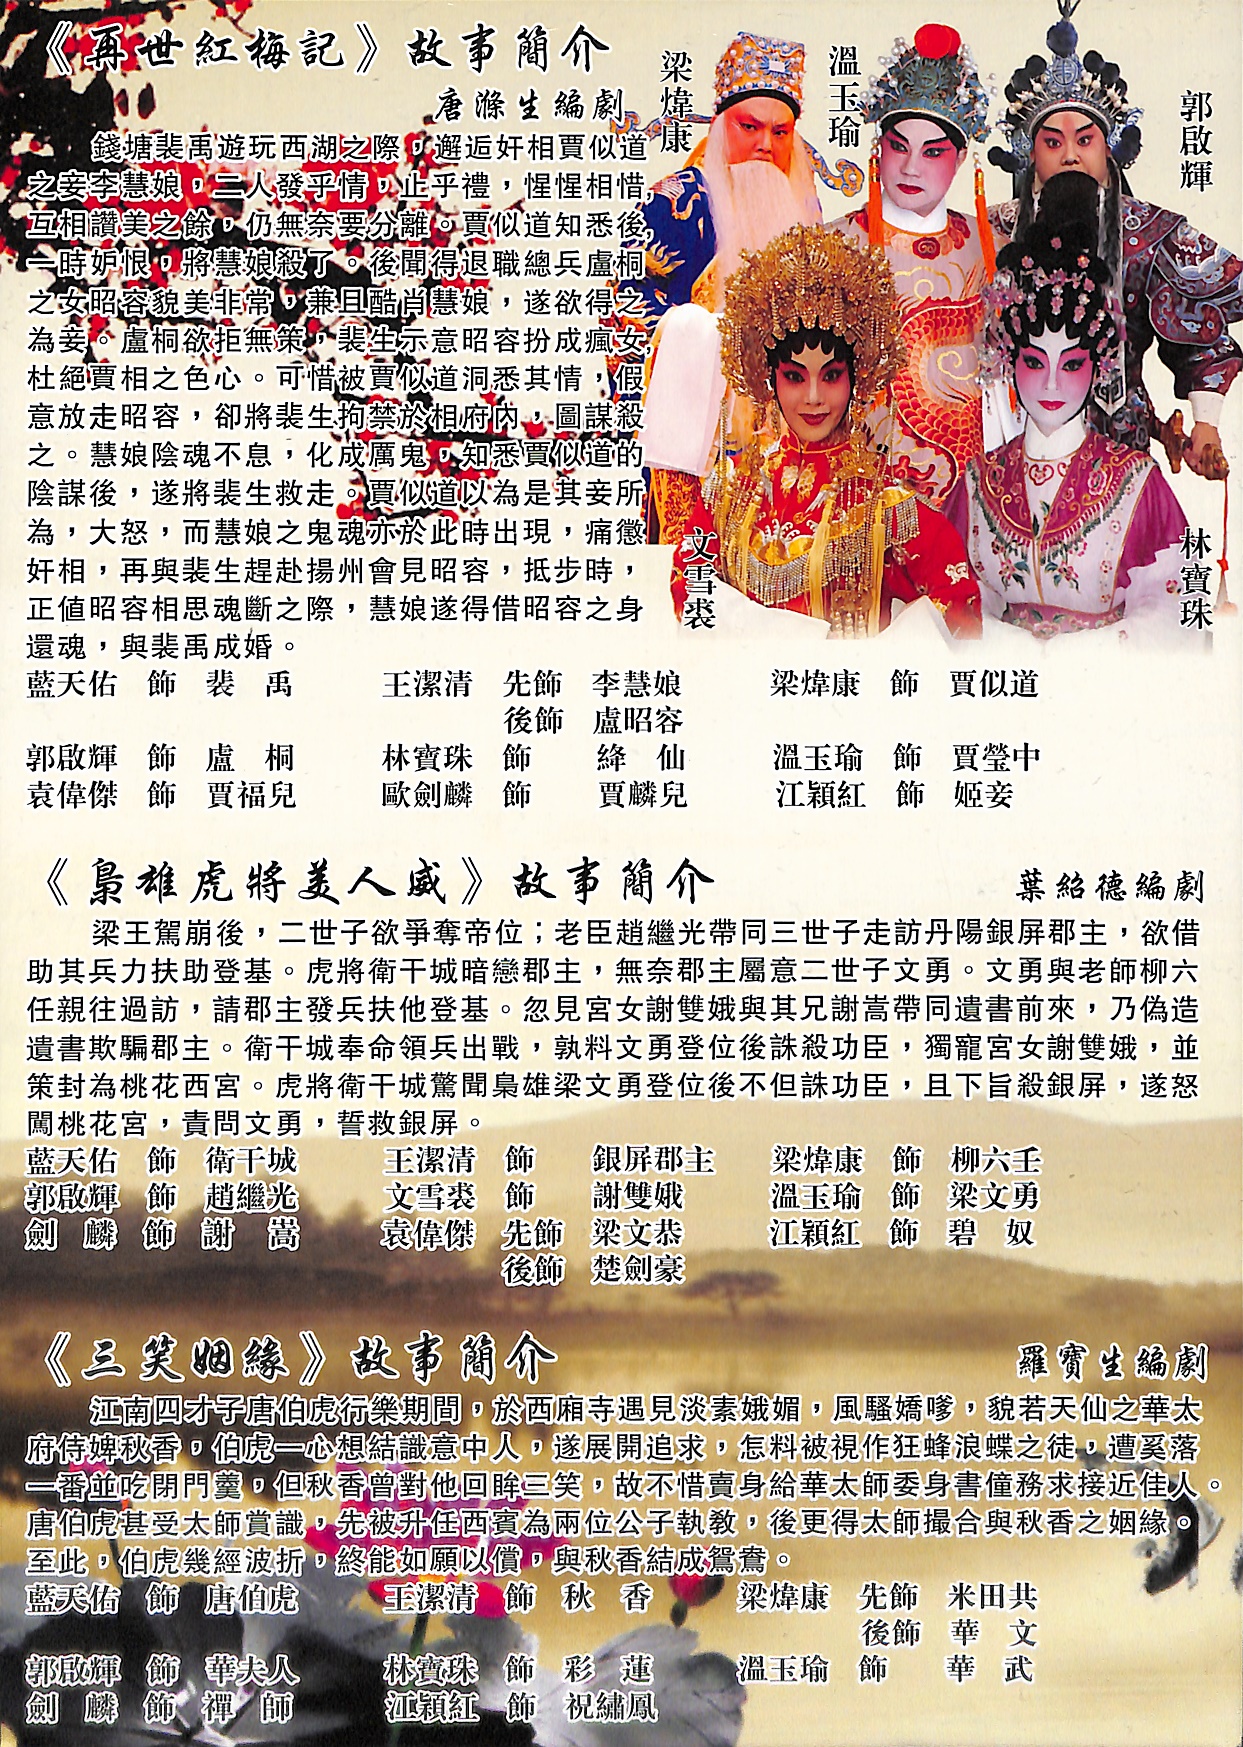 《再世紅梅記》故事簡介
唐滌生編劇
錢塘裴禹遊玩西湖之際，邂逅奸相賈似道
之妾李慧娘，二人發乎情，止乎禮，惺惺相惜，
互相讚美之餘，仍無奈要分離。賈似道知悉後，
一時妒恨，將慧娘殺了。後聞得退職總兵盧桐
之女昭容貌美非常，兼且酷肖慧娘，遂欲得之
為妾。盧桐欲拒無策，裴生示意昭容扮成瘋女，
杜絕賈相之色心。可惜被賈似道洞悉其情，假
意放走昭容，卻將裴生拘禁於相府內，圖謀殺
之。慧娘陰魂不息，化成厲鬼，知悉賈似道的
陰謀後，遂將裴生救走。賈似道以為是其妾所
為，大怒，而慧娘之鬼魂亦於此時出現，痛懲
奸相，再與裴生趕赴揚州會見昭容，抵步時，
正值昭容相思魂斷之際，慧娘遂得借昭容之身
還魂，與裴禹成婚。
梁煒康
溫玉瑜
郭啟輝
文雪裘
林寶珠
藍天佑 飾 裴 禹 王潔清 先飾 李慧娘 梁煒康 飾 賈似道
後飾 盧昭容
郭啟輝 飾 盧 桐 林寶珠 飾 絳 仙 溫玉瑜 飾 賈瑩中
袁偉傑 飾 賈福兒 歐劍麟 飾 賈麟兒 江穎紅 飾 姬妾
《梟雄虎將美人威》故事簡介 葉紹德編劇
梁王駕崩後，二世子欲爭奪帝位；老臣趙繼光帶同三世子走訪丹陽銀屏郡主，欲借
助其兵力扶助登基。虎將衛干城暗戀郡主，無奈郡主屬意二世子文勇。文勇與老師柳六
任親往過訪，請郡主發兵扶他登基。忽見宮女謝雙娥與其兄謝嵩帶同遺書前來，乃偽造
遺書欺騙郡主。衛干城奉命領兵出戰，孰料文勇登位後誅殺功臣，獨寵宮女謝雙娥，並
策封為桃花西宮。虎將衛干城驚聞梟雄梁文勇登位後不但誅功臣，且下旨殺銀屏，遂怒
闖桃花宮，責問文勇，誓救銀屏。
藍天佑 飾 衛干城 王潔清 飾 銀屏郡主 梁煒康 飾 柳六壬
郭啟輝 飾 趙繼光 文雪裘 飾 謝雙娥 溫玉瑜 飾 梁文勇
劍 麟 飾 謝 嵩 袁偉傑 先飾 梁文恭 江穎紅 飾 碧 奴
後飾 楚劍豪
《三笑姻緣》故事簡介 羅寶生編劇
江南四才子唐伯虎行樂期間，於西廂寺遇見淡素娥媚，風騷嬌嗲，貌若天仙之華太
府侍婢秋香，伯虎一心想結識意中人，遂展開追求，怎料被視作狂蜂浪蝶之徒，遭奚落
一番並吃閉門羹，但秋香曾對他回眸三笑，故不惜賣身給華太師委身書僮務求接近佳人。
唐伯虎甚受太師賞識，先被升任西賓為兩位公子執教，後更得太師撮合與秋香之姻緣。
至此，伯虎幾經波折，終能如願以償，與秋香結成鴛鴦。
藍天佑 飾 唐伯虎 王潔清 飾 秋 香 梁煒康 先飾 米田共
後飾 華 文
郭啟輝 飾 華夫人 林寶珠 飾 彩 蓮 溫玉瑜 飾 華 武
劍 麟 飾 禪 師 江穎紅 飾 祝繡鳳